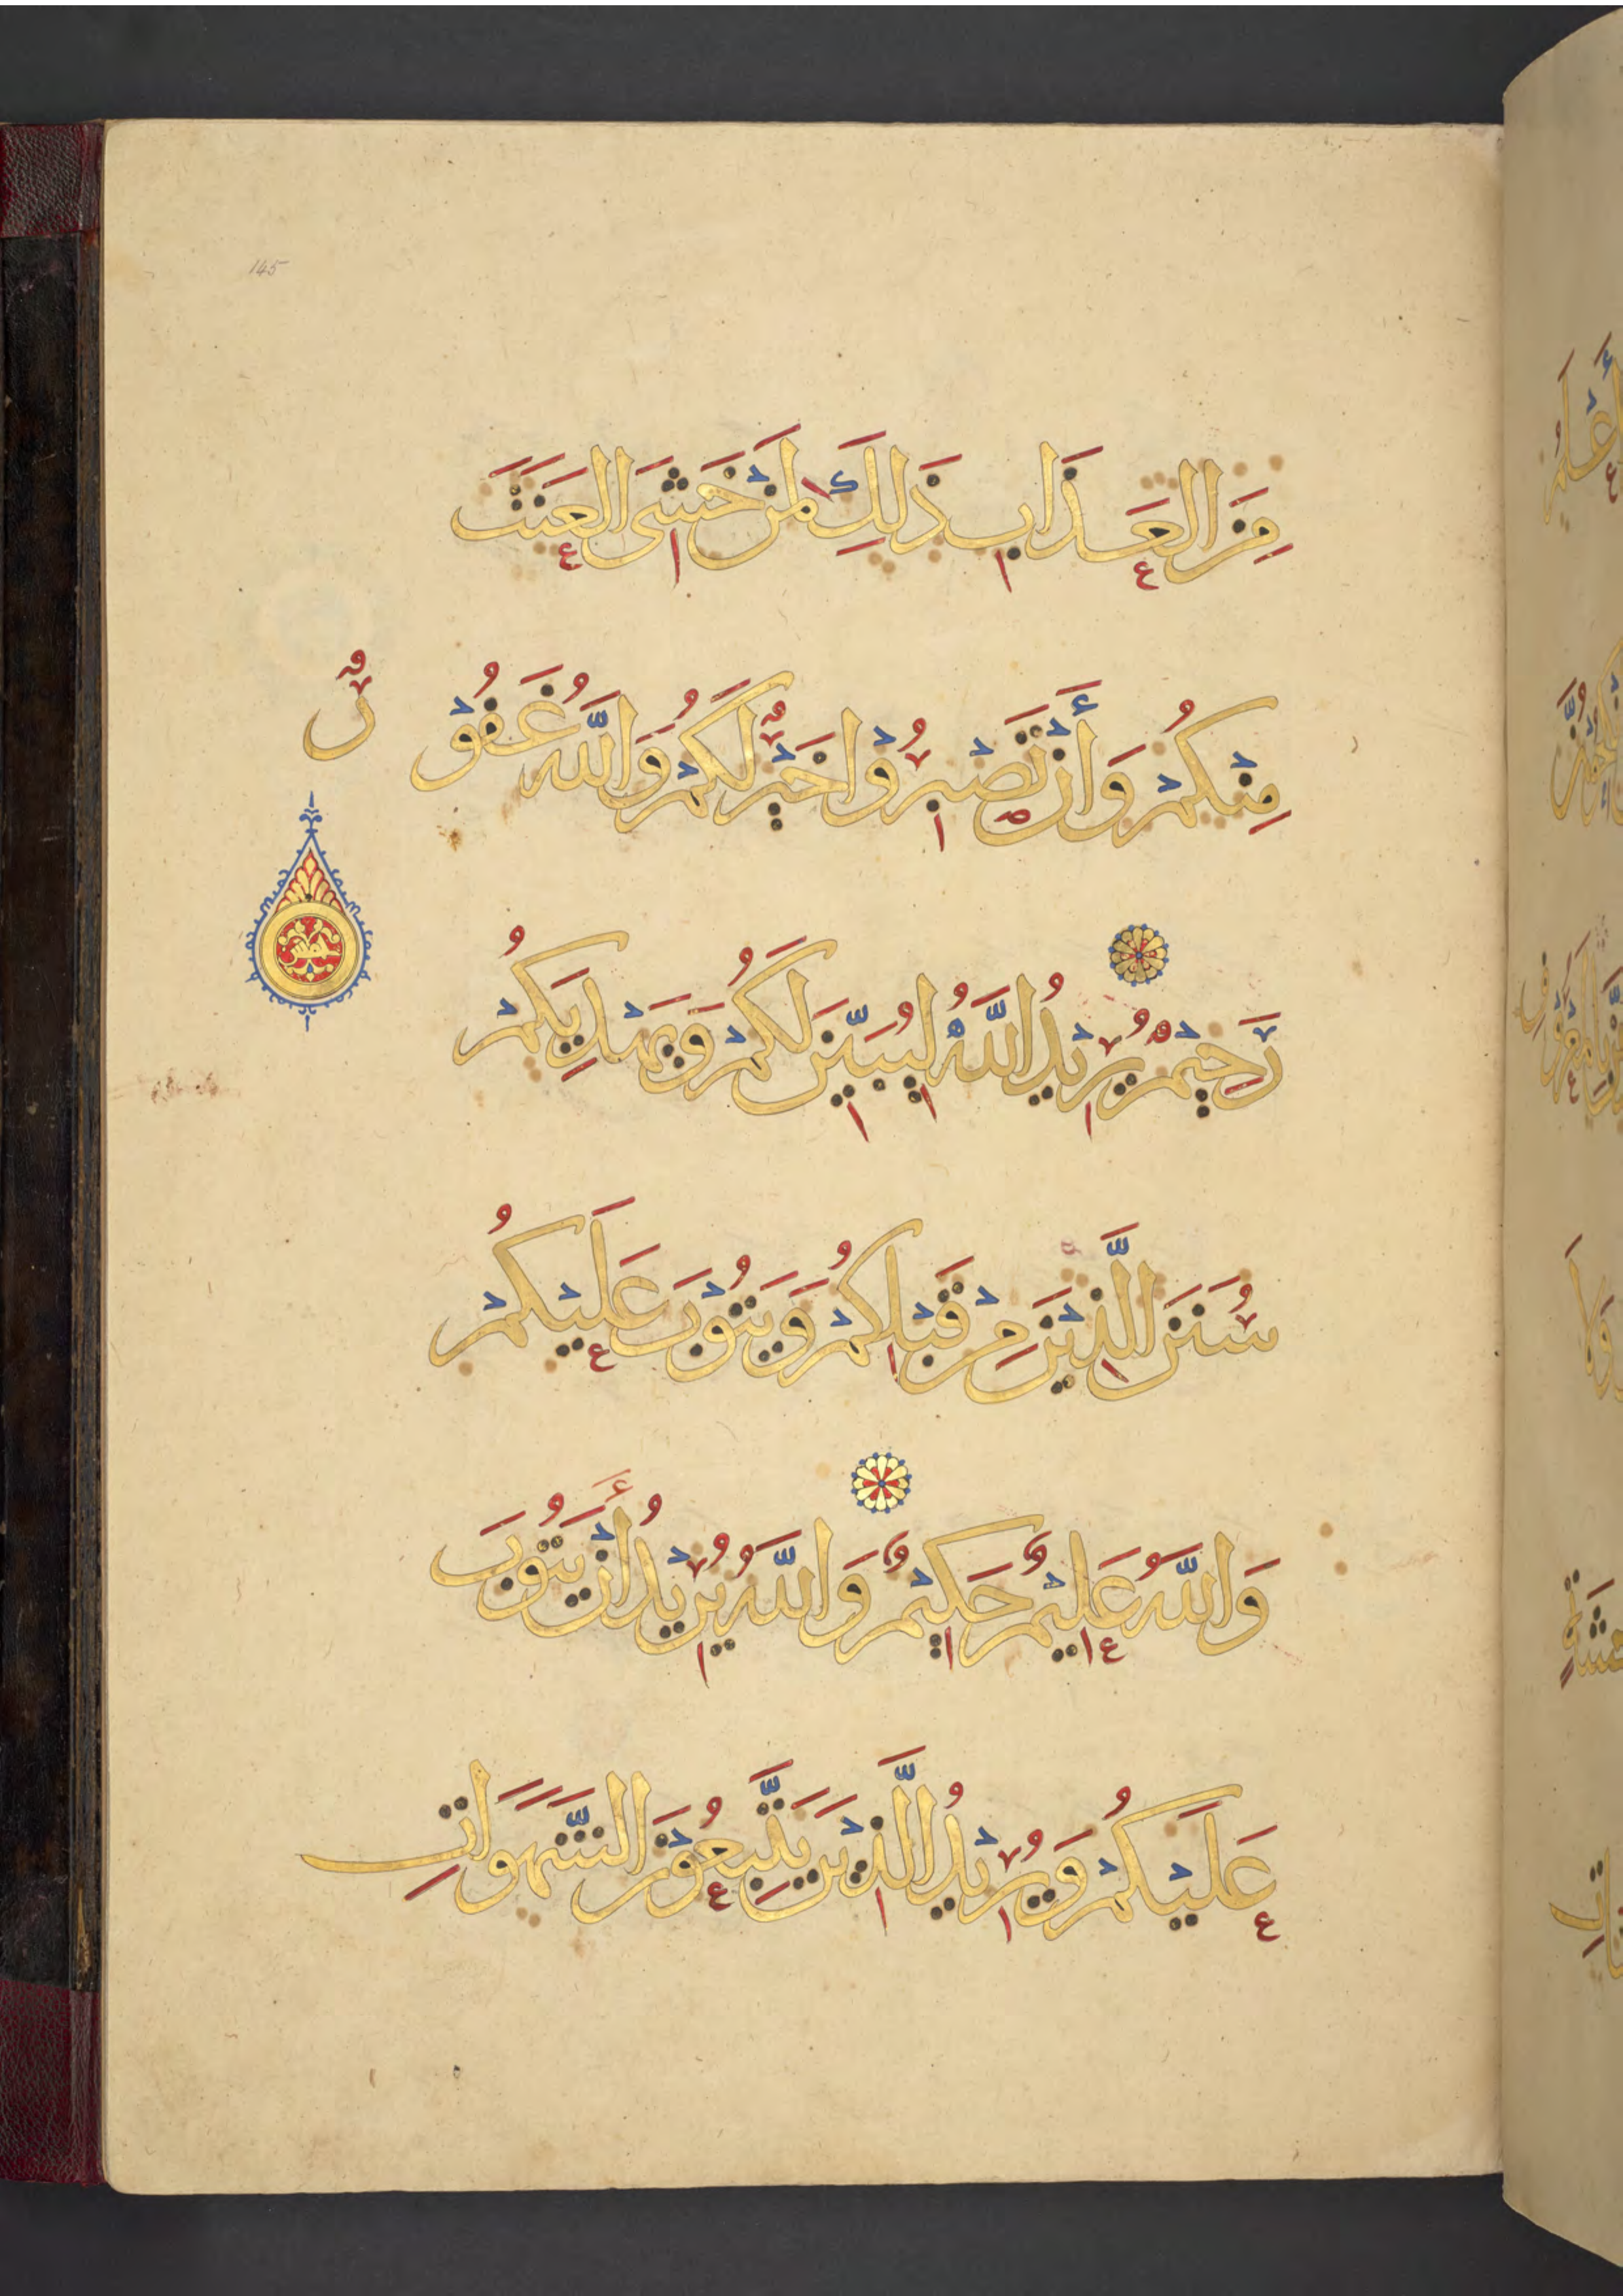 145
مِنَ الْعَذَابِ ذَلِكَ لِمَنْ خَشِيَ الْعَنَتَ
مِنْكُمْ وَأَنْ تَصْبِرُوْا خَيْرٌ لَكُمْ وَاللَّهُ غَفُوْرٌ
رَحِيْمٌ يُرِيْدُ اللَّهُ لِيُبَيِّنَ لَكُمْ وَيَهْدِيَكُمْ
سُنَنَ الَّذِيْنَ مِنْ قَبْلِكُمْ وَيَتُوْبَ عَلَيْكُمْ
وَاللَّهُ عَلِيْمٌ حَكِيْمٌ وَاللَّهُ يُرِيْدُ أَنْ يَتُوْبَ
عَلَيْكُمْ وَيُرِيْدُ الَّذِيْنَ يَتَّبِعُوْنَ الشَّهَوَاتِ